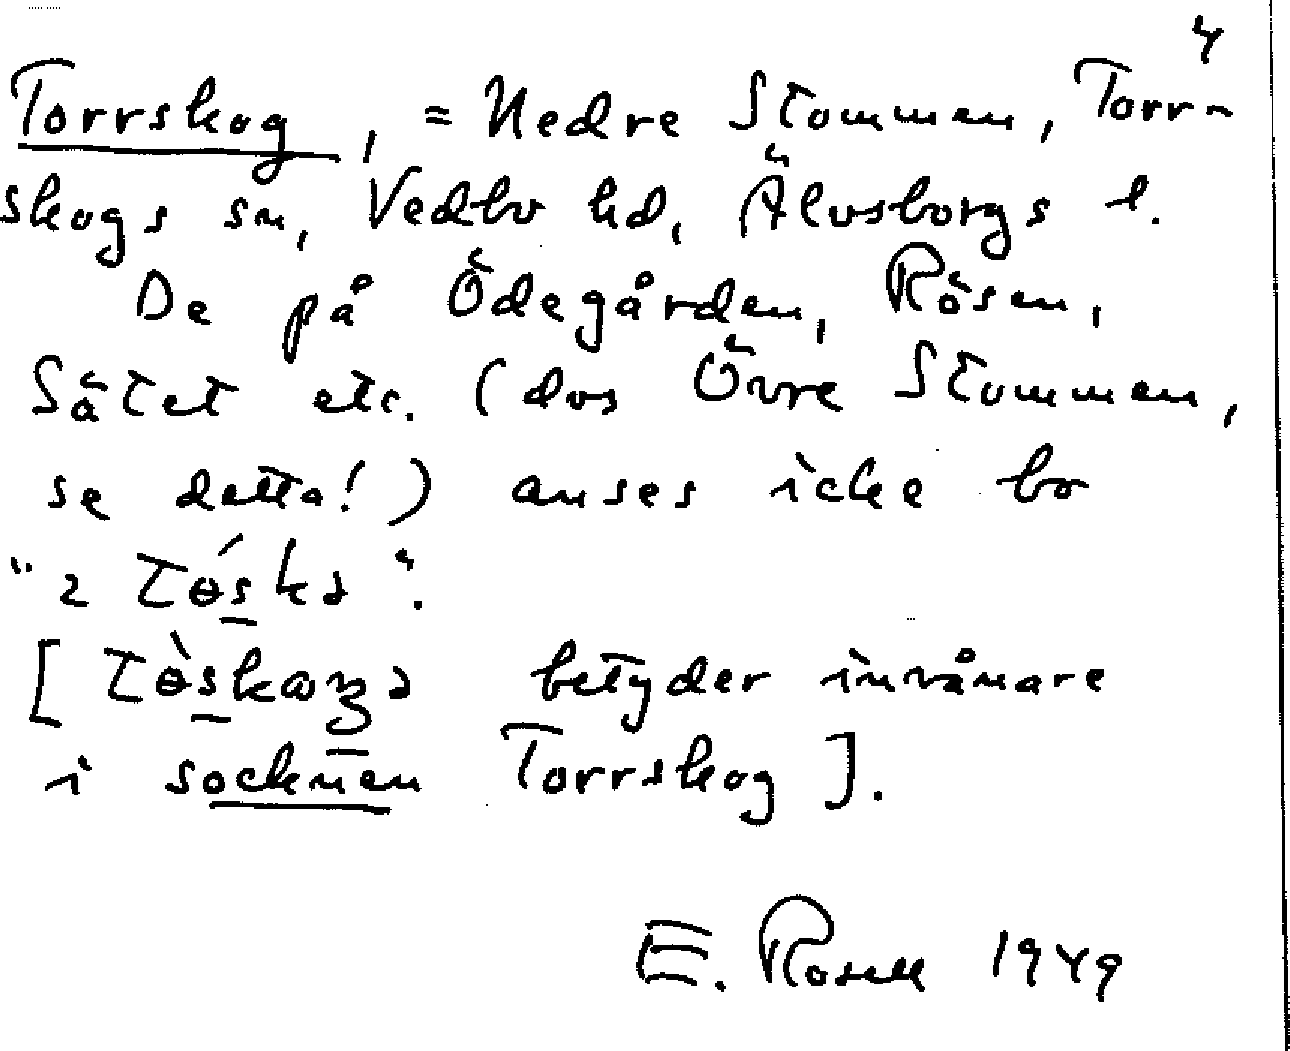 4
Torrskog, = Nedre Stommen, Torr-
skogs sn, Vedbo hd, Älvsborgs l.
De på Ödegården, Rösen,
Sätet etc. (dvs Övre Stommen,
se detta!) anses icke bo
betyder invånare
i socknen Torrskog].
E. Rosell 1949